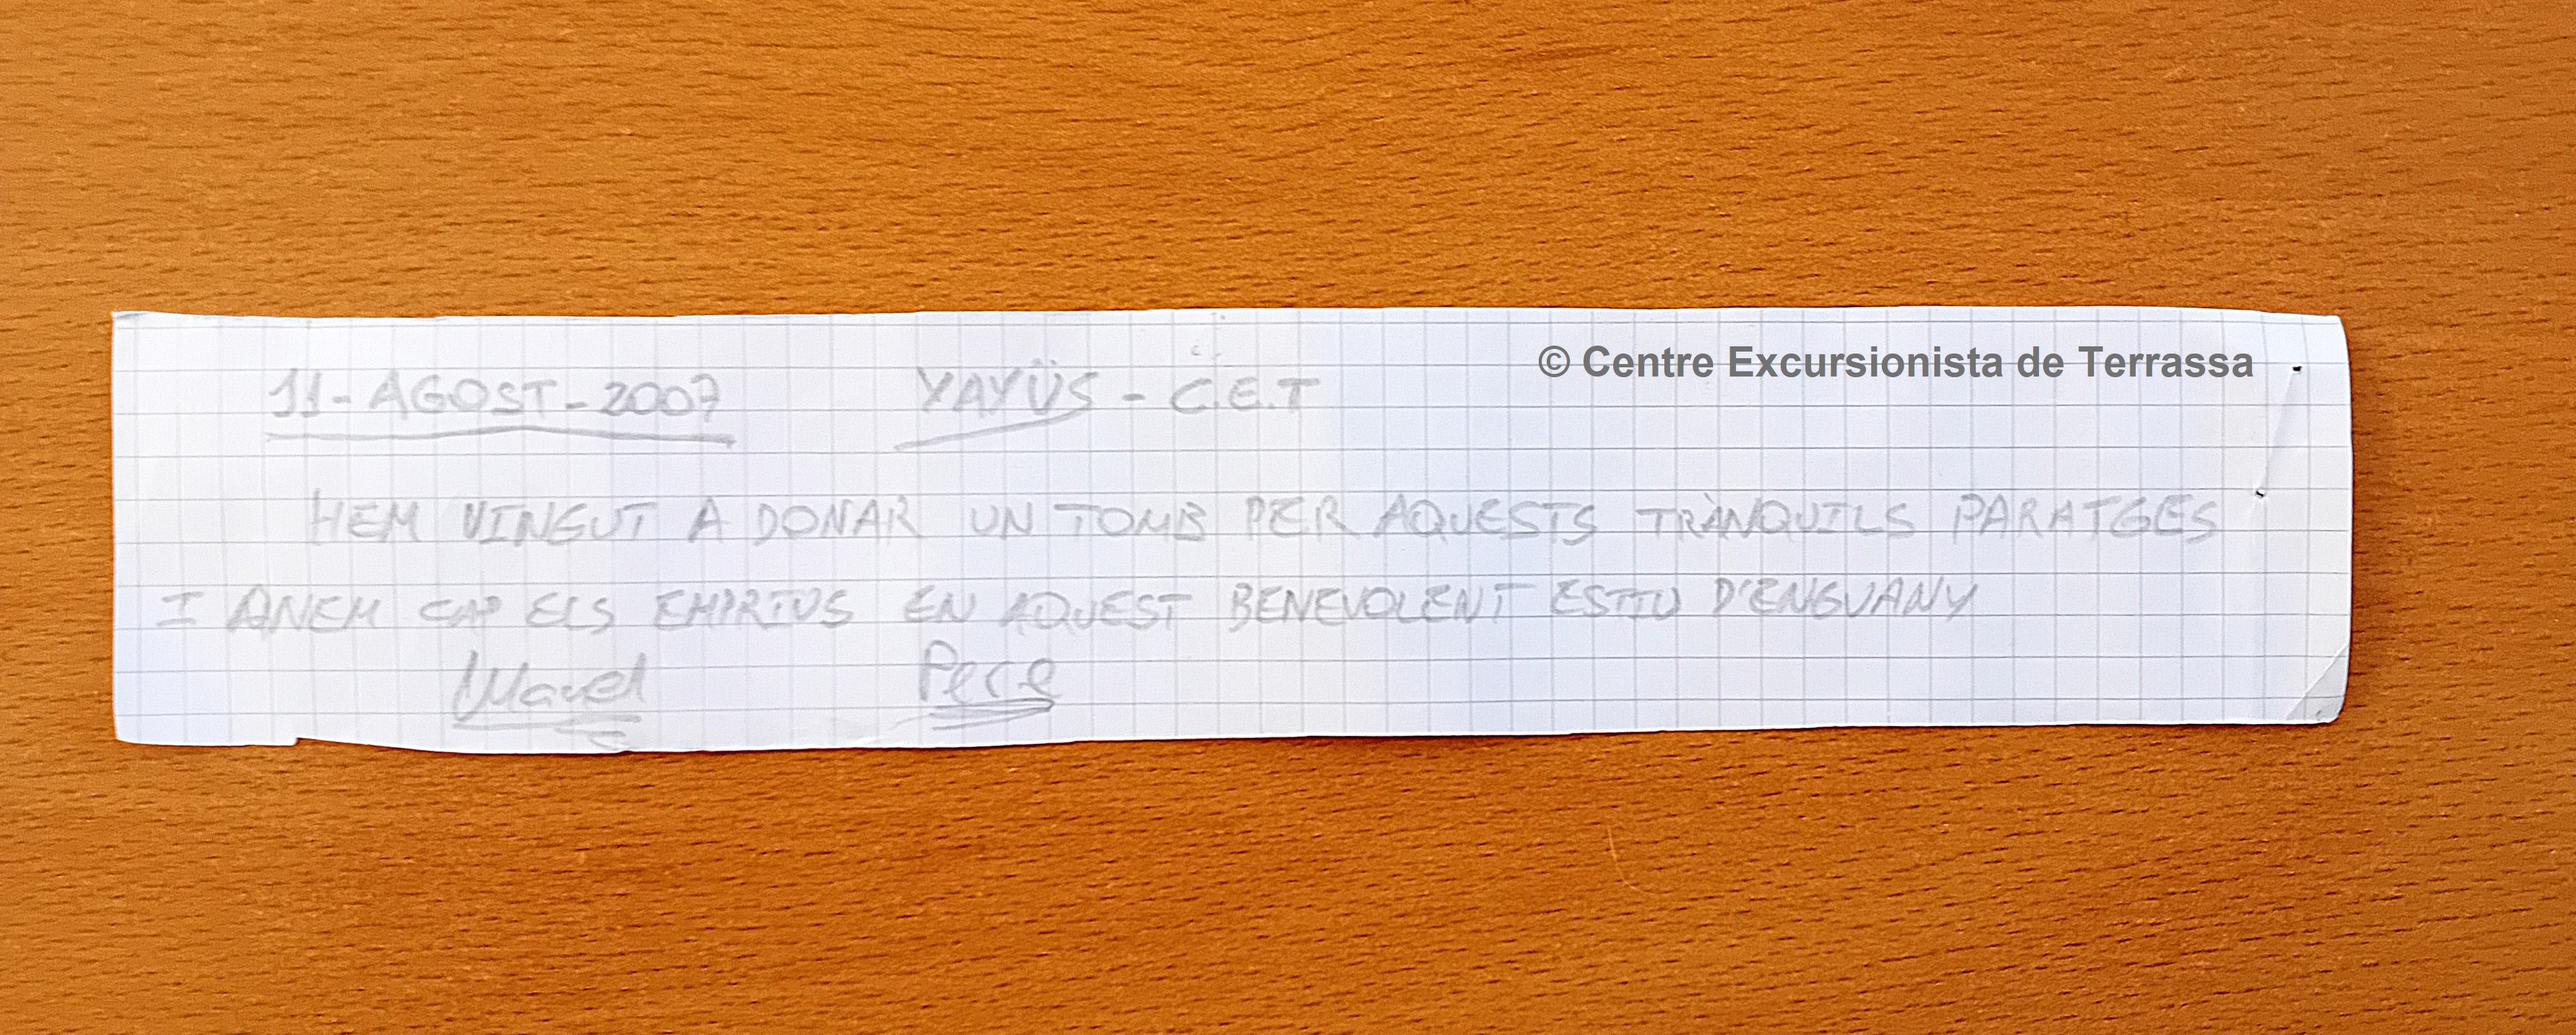 © Centre Excursionista de Terrassa
11-AGOST-2007 YAYÜS - C.E.T
HEM VINGUT A DONAR UN TOMB PER AQUESTS TRÀNQUILS PARATGES
I ANEM CAP ELS EMPRIUS EN AQUEST BENEVOLENT ESTIU D'ENGUANY
Pere